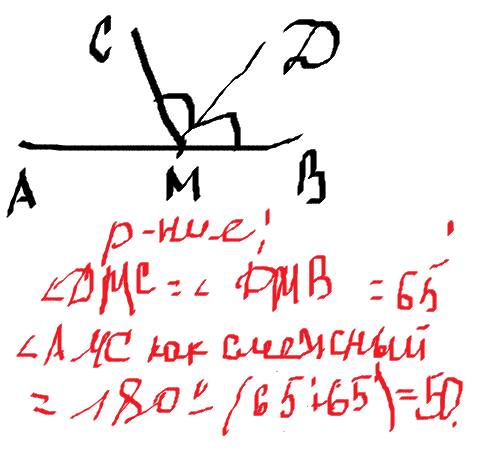 C D
A M B
р-ние:
∠DMC = ∠ DMB = 65
∠AMC как смежный
= 180° - (65+65) = 50.